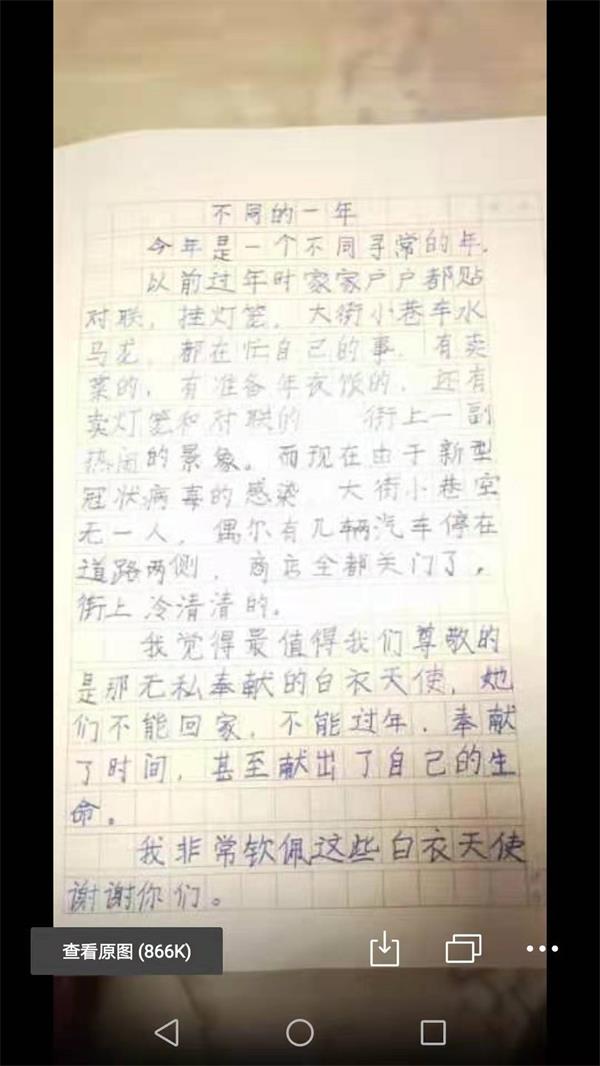 不同的一年
今年是一个不同寻常的年.
以前过年时家家户户都贴
对联，挂灯笼，大街小巷车水
马龙，都在忙自己的事．有卖
菜的，有准备年夜饭的．还有
卖灯笼和对联的 街上一副
热闹的景象。而现在由于新型
冠状病毒的感染，大街小巷空
无一人，偶尔有几辆汽车停在
道路两侧，商店全都关门了，
街上冷清清的。
我觉得最值得我们尊敬的
是那无私奉献的白衣天使，她
们不能回家，不能过年．奉献
了时间，甚至献出了自己的生
命。
我非常钦佩这些白衣天使
谢谢你们。
查看原图 (866K)